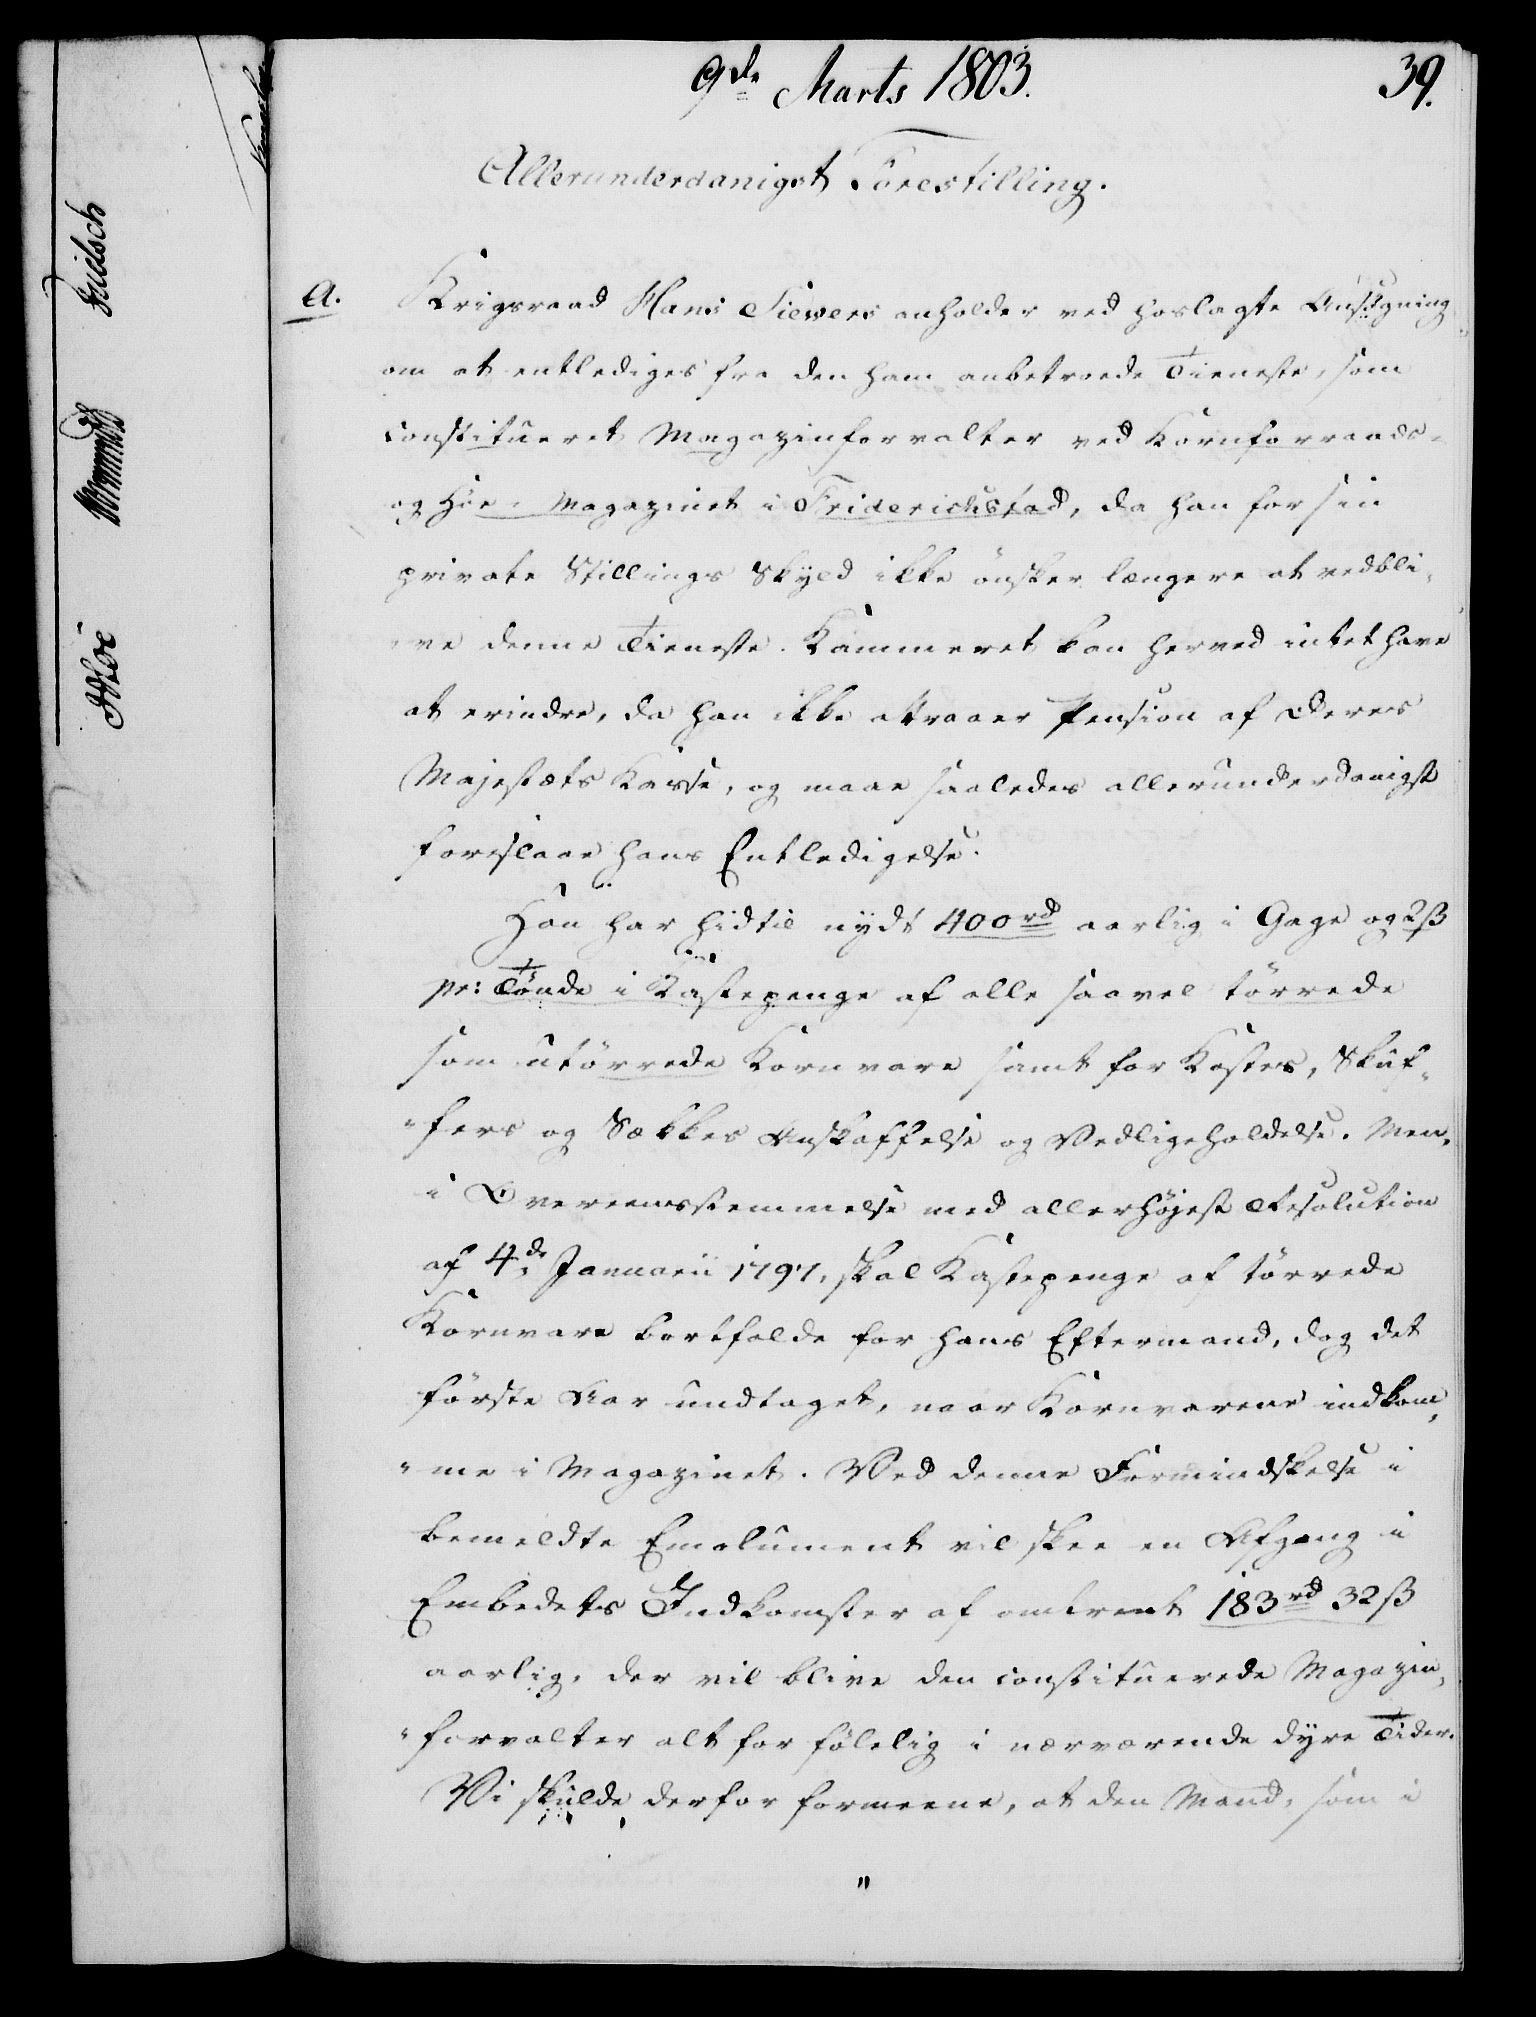 9de Marts 1803.
39.
Allerunderdanigst Forestilling.
A. Krigsraad Hans Sievers anholder ved hoslagte Ansögning
om at entlediges fra den ham anbetroede Tieneste, som
constitueret Magazinforvalter ved Kornforraads-
og Höe-Magazinet i Friderichstad, da han for sin
private Stillings Skyld ikke önsker længere at vedbli-
ve denne Tieneste. Kammeret kan herved intet have
at erindre, da han ikke attraaer Pension af Deres
Majestæts Kasse, og maae saaledes allerunderdanigst
foreslaae hans Entledigelse.
Han har hidtil nydt 400 rd aarlig i Gage og 2 ß
pr: Tönde i Kastepenge af alle saavel törrede
som utörrede Kornvare samt for Kostes, Skuf-
fers og Sækkes Anskaffelse og Vedligeholdelse. Men,
i Overeensstemmelse med allerhöjest Resolution
af 4de Januarii 1797, skal Kastepenge af törrede
Kornvare bortfalde for hans Eftermand, dog det
förste Aar undtaget, naar Kornvarene indkom-
me i Magazinet. Ved denne Formindskelse i
bemeldte Emolument vil skee en Afgang i
Embedets Indkomster af omtrent 183 rd 32 ß
aarlig, der vil blive den constituerede Magazin-
forvalter alt for fölelig i nærværende dyre Tider.
Vi skulde derfor formeene, at den Mand, som i
"
Fridsch
Wormskiold
Höe